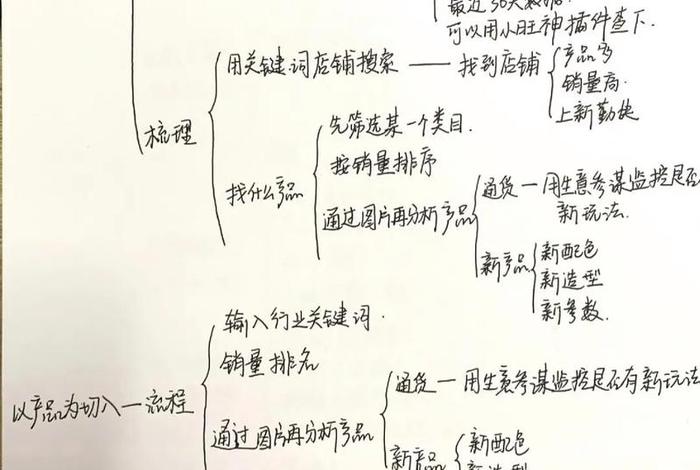 最近30天数据.
可以用小旺神插件查下.
梳理
用关键词店铺搜索 — 找到店铺
产品多
销量高.
上新勤快
找什么产品
先筛选某一个类目.
按销量排序
通过图片再分析产品
通货 — 用生意参谋监控是否
新玩法.
新产品
新配色
新造型
新参数.
以产品为切入 — 流程
输入行业关键词.
销量排名
通过图片再分析产品
通货 — 用生意参谋监控是否有新玩法
新产品
新配色